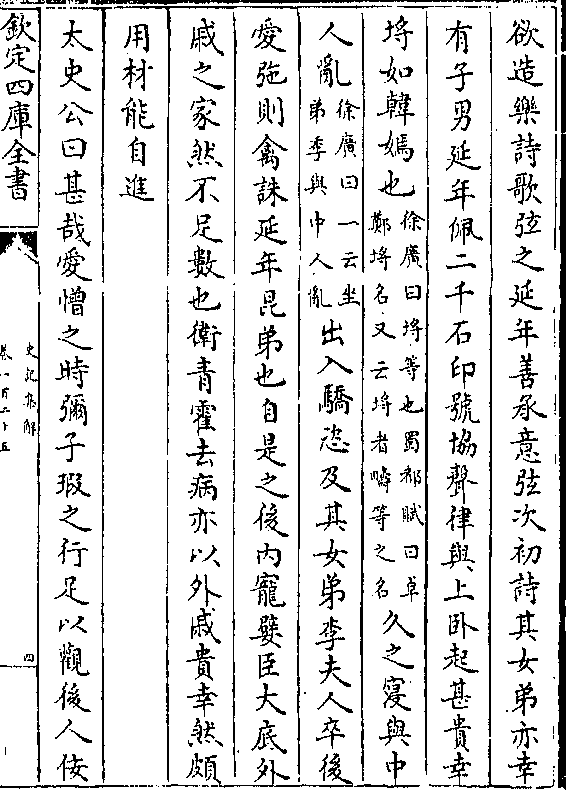 欲造樂詩歌弦之延年善承意弦次初詩其女弟亦幸
有子男延年佩二千石印號協聲律與上卧起甚貴幸
埒如韓嫣也徐廣曰埒等也蜀都賦曰卓鄭埒名又云埒者疇等之名久之寖與中
人亂徐廣曰一云坐弟季與中人亂出入驕恣及其女弟李夫人卒後
愛弛則禽誅延年昆弟也自是之後內寵嬖臣大底外
戚之家然不足數也衛青霍去病亦以外戚貴幸然頗
用材能自進
太史公曰甚哉愛憎之時彌子瑕之行足以觀後人佞
欽定四庫全書
史記集解
卷一百二十五
四